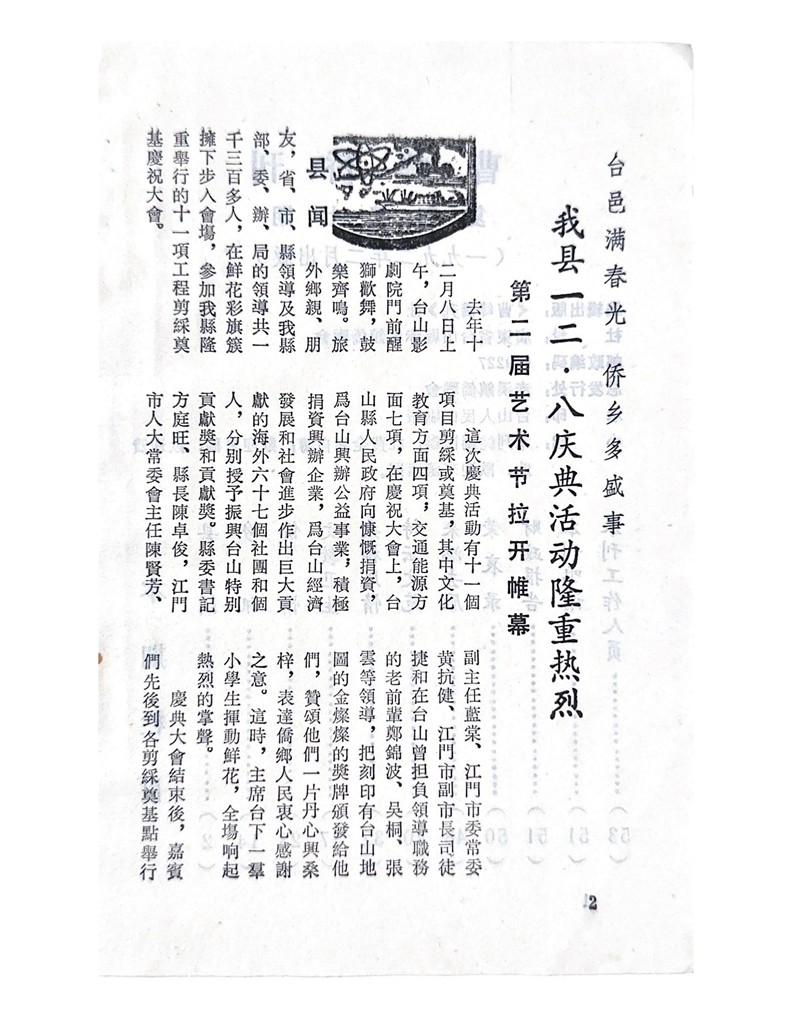 台邑满春光 侨乡多盛事
我县一二·八庆典活动隆重热烈
第二届艺术节拉开帷幕
县闻
去年十
二月八日上
午，台山影
劇院門前醒
獅歡舞，鼓
樂齊鳴。旅
外鄉親、朋
友，省、市、縣領導及我縣
部、委、辦、局的領導共一
千三百多人，在鮮花彩旗簇
擁下步入會場，參加我縣隆
重舉行的十一項工程剪綵奠
基慶祝大會。
這次慶典活動有十一個
項目剪綵或奠基，其中文化
教育方面四項，交通能源方
面七項，在慶祝大會上，台
山縣人民政府向慷慨捐資，
爲台山興辦公益事業，積極
捐資興辦企業，爲台山經濟
發展和社會進步作出巨大貢
獻的海外六十七個社團和個
人，分別授予振興台山特別
貢獻獎和貢獻獎。縣委書記
方庭旺、縣長陳卓俊，江門
市人大常委會主任陳賢芳、
副主任藍棠、江門市委常委
黃抗健、江門市副市長司徒
捷和在台山曾担負領導職務
的老前輩鄭錦波、吴桐、張
雲等領導，把刻印有台山地
圖的金燦燦的獎牌頒發給他
們，贊頌他們一片丹心興桑
梓，表達僑鄉人民衷心感謝
之意。這時，主席台下一羣
小學生揮動鮮花，全場响起
熱烈的掌聲。
慶典大會結束後，嘉賓
們先後到各剪綵奠基點舉行
2